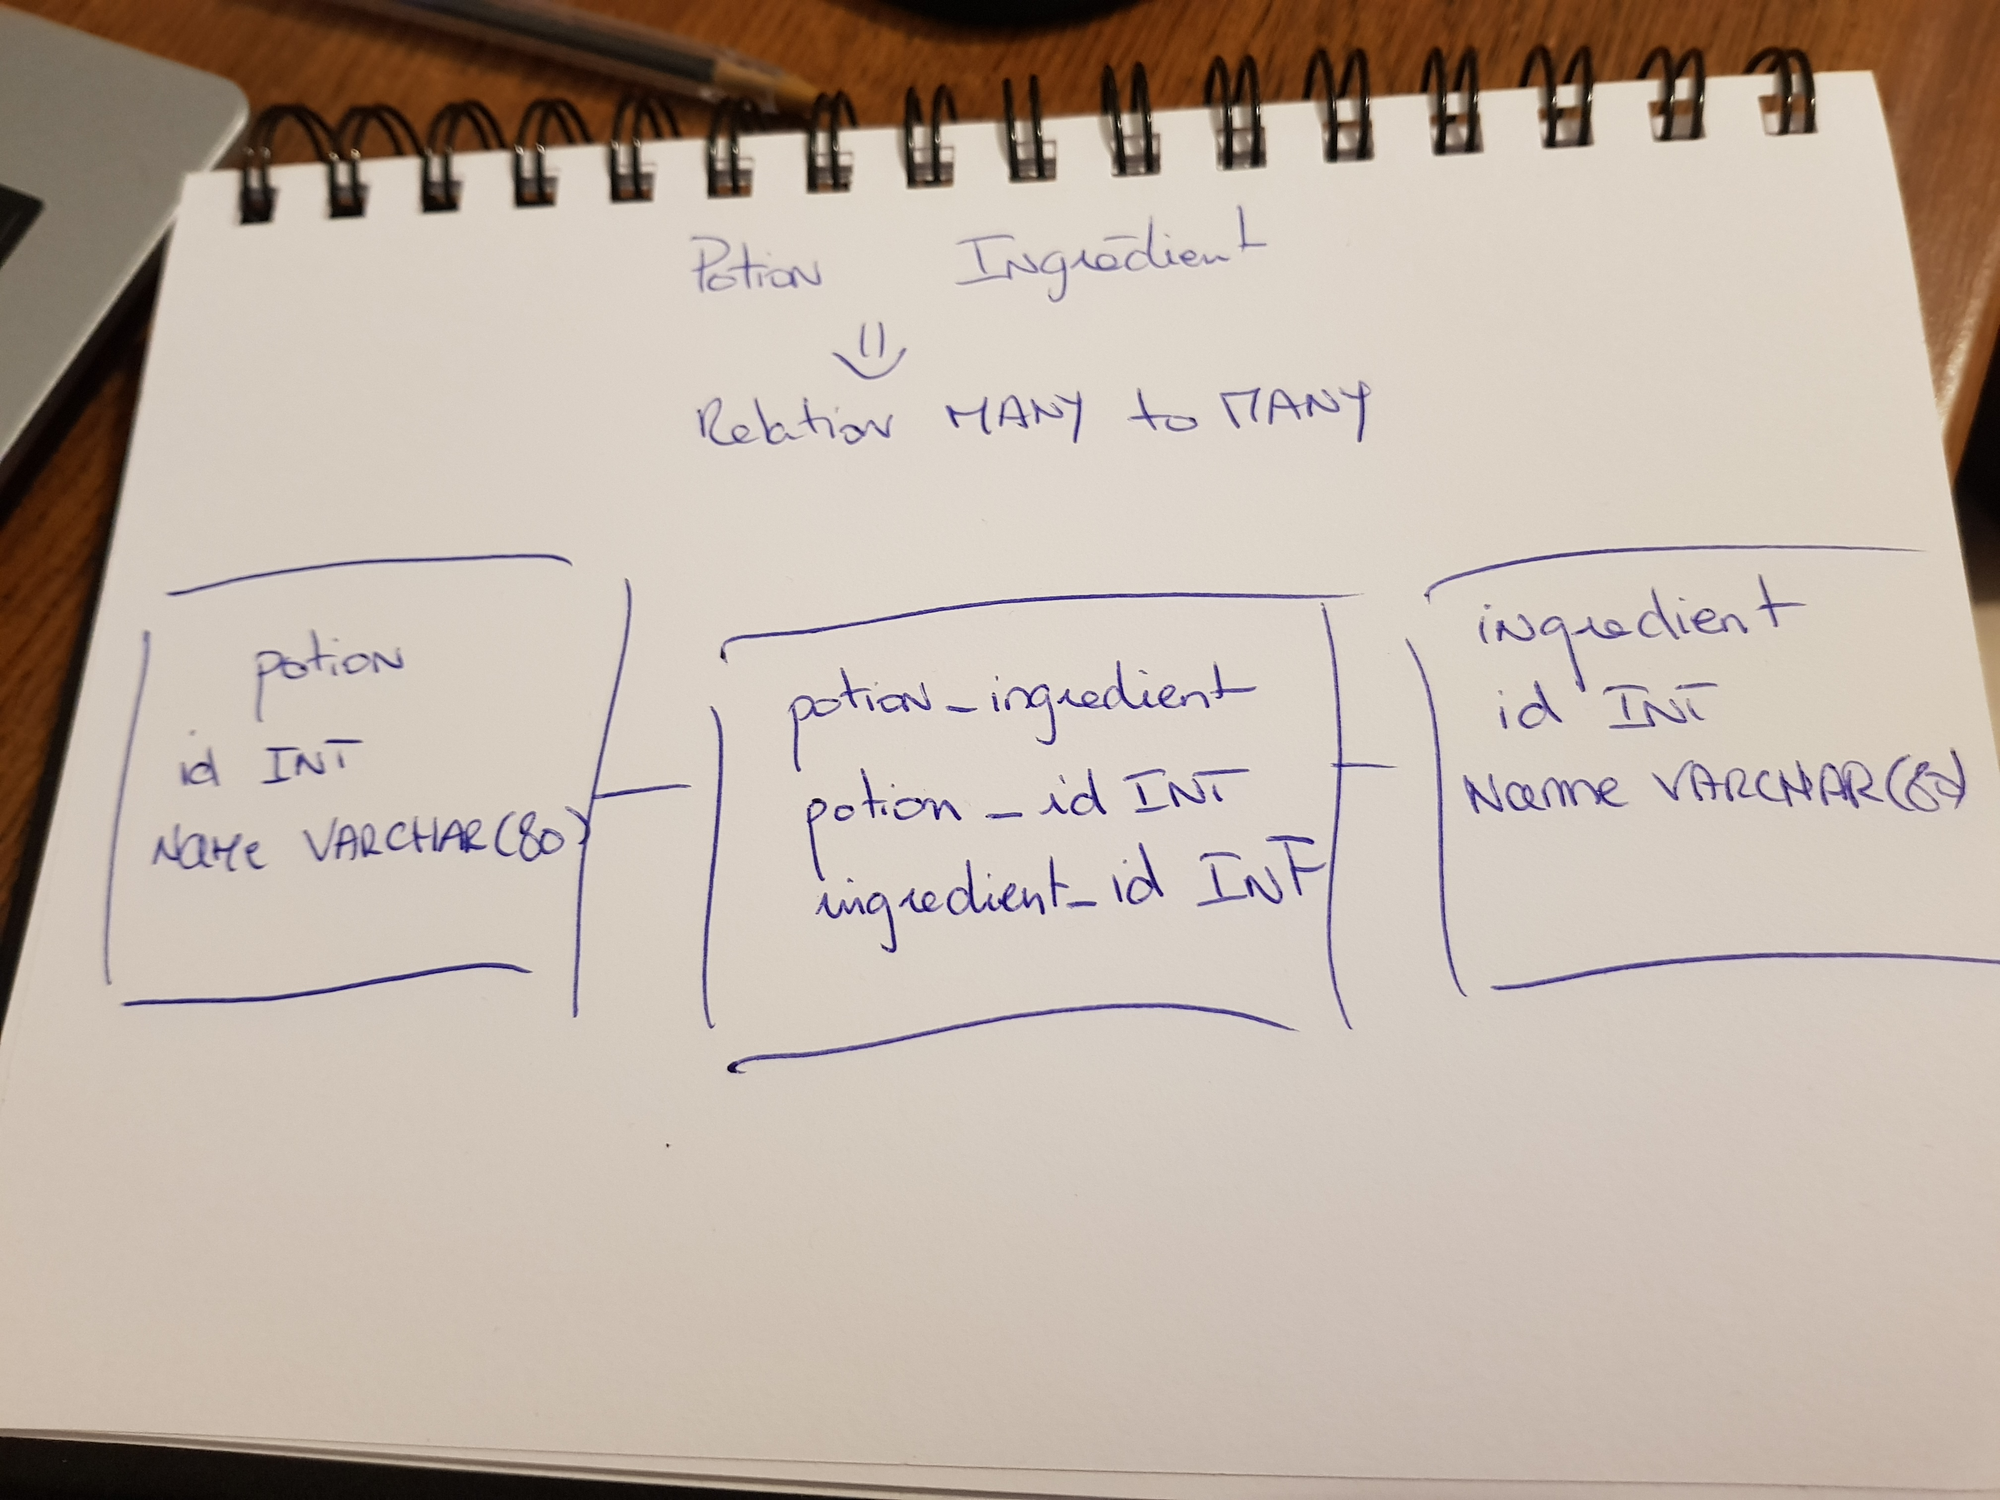 Potion Ingredient
Relation MANY to MANY
potion
id INT
Name VARCHAR(80)
potion_ingredient
potion_id INT
ingredient_id INT
ingredient
id INT
Name VARCHAR(80)